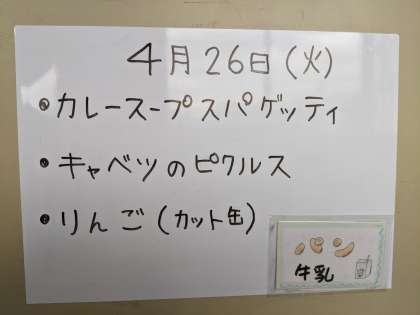 4月26日(火)
・カレースープスパゲッティ
・キャベツのピクルス
・りんご(カット缶)
パン
牛乳